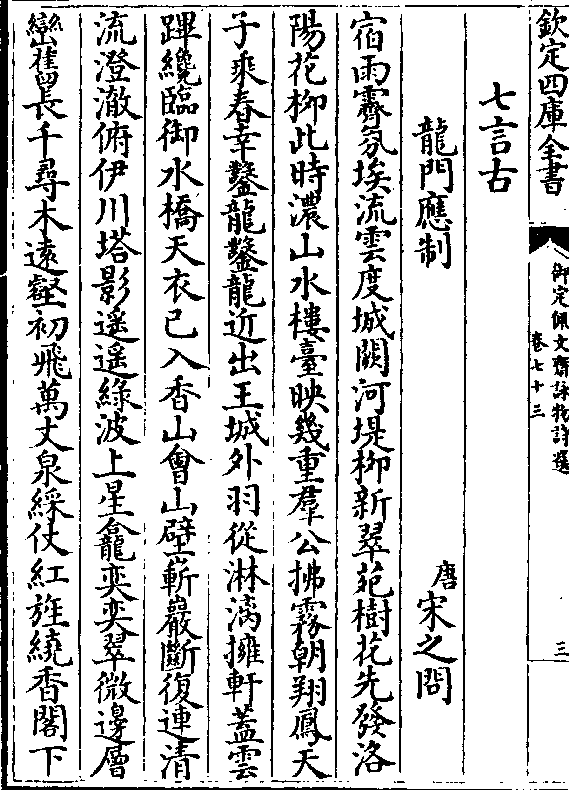 欽定四庫全書
御定佩文齋詠物詩選
卷七十三
三
七言古
龍門應制
唐宋之問
宿雨霽氛埃流雲度城闕河堤柳新翠苑樹花先發洛
陽花柳此時濃山水樓臺映幾重羣公拂霧朝翔鳳天
子乘春幸鑿龍鑿龍近出王城外羽從淋漓擁軒蓋雲
蹕纔臨御水橋天衣已入香山會山壁嶄巖斷復連清
流澄澈俯伊川塔影遥遥綠波上星龕奕奕翠微邊層
巒舊長千尋木遠壑初飛萬丈泉綵仗紅旌繞香閣下